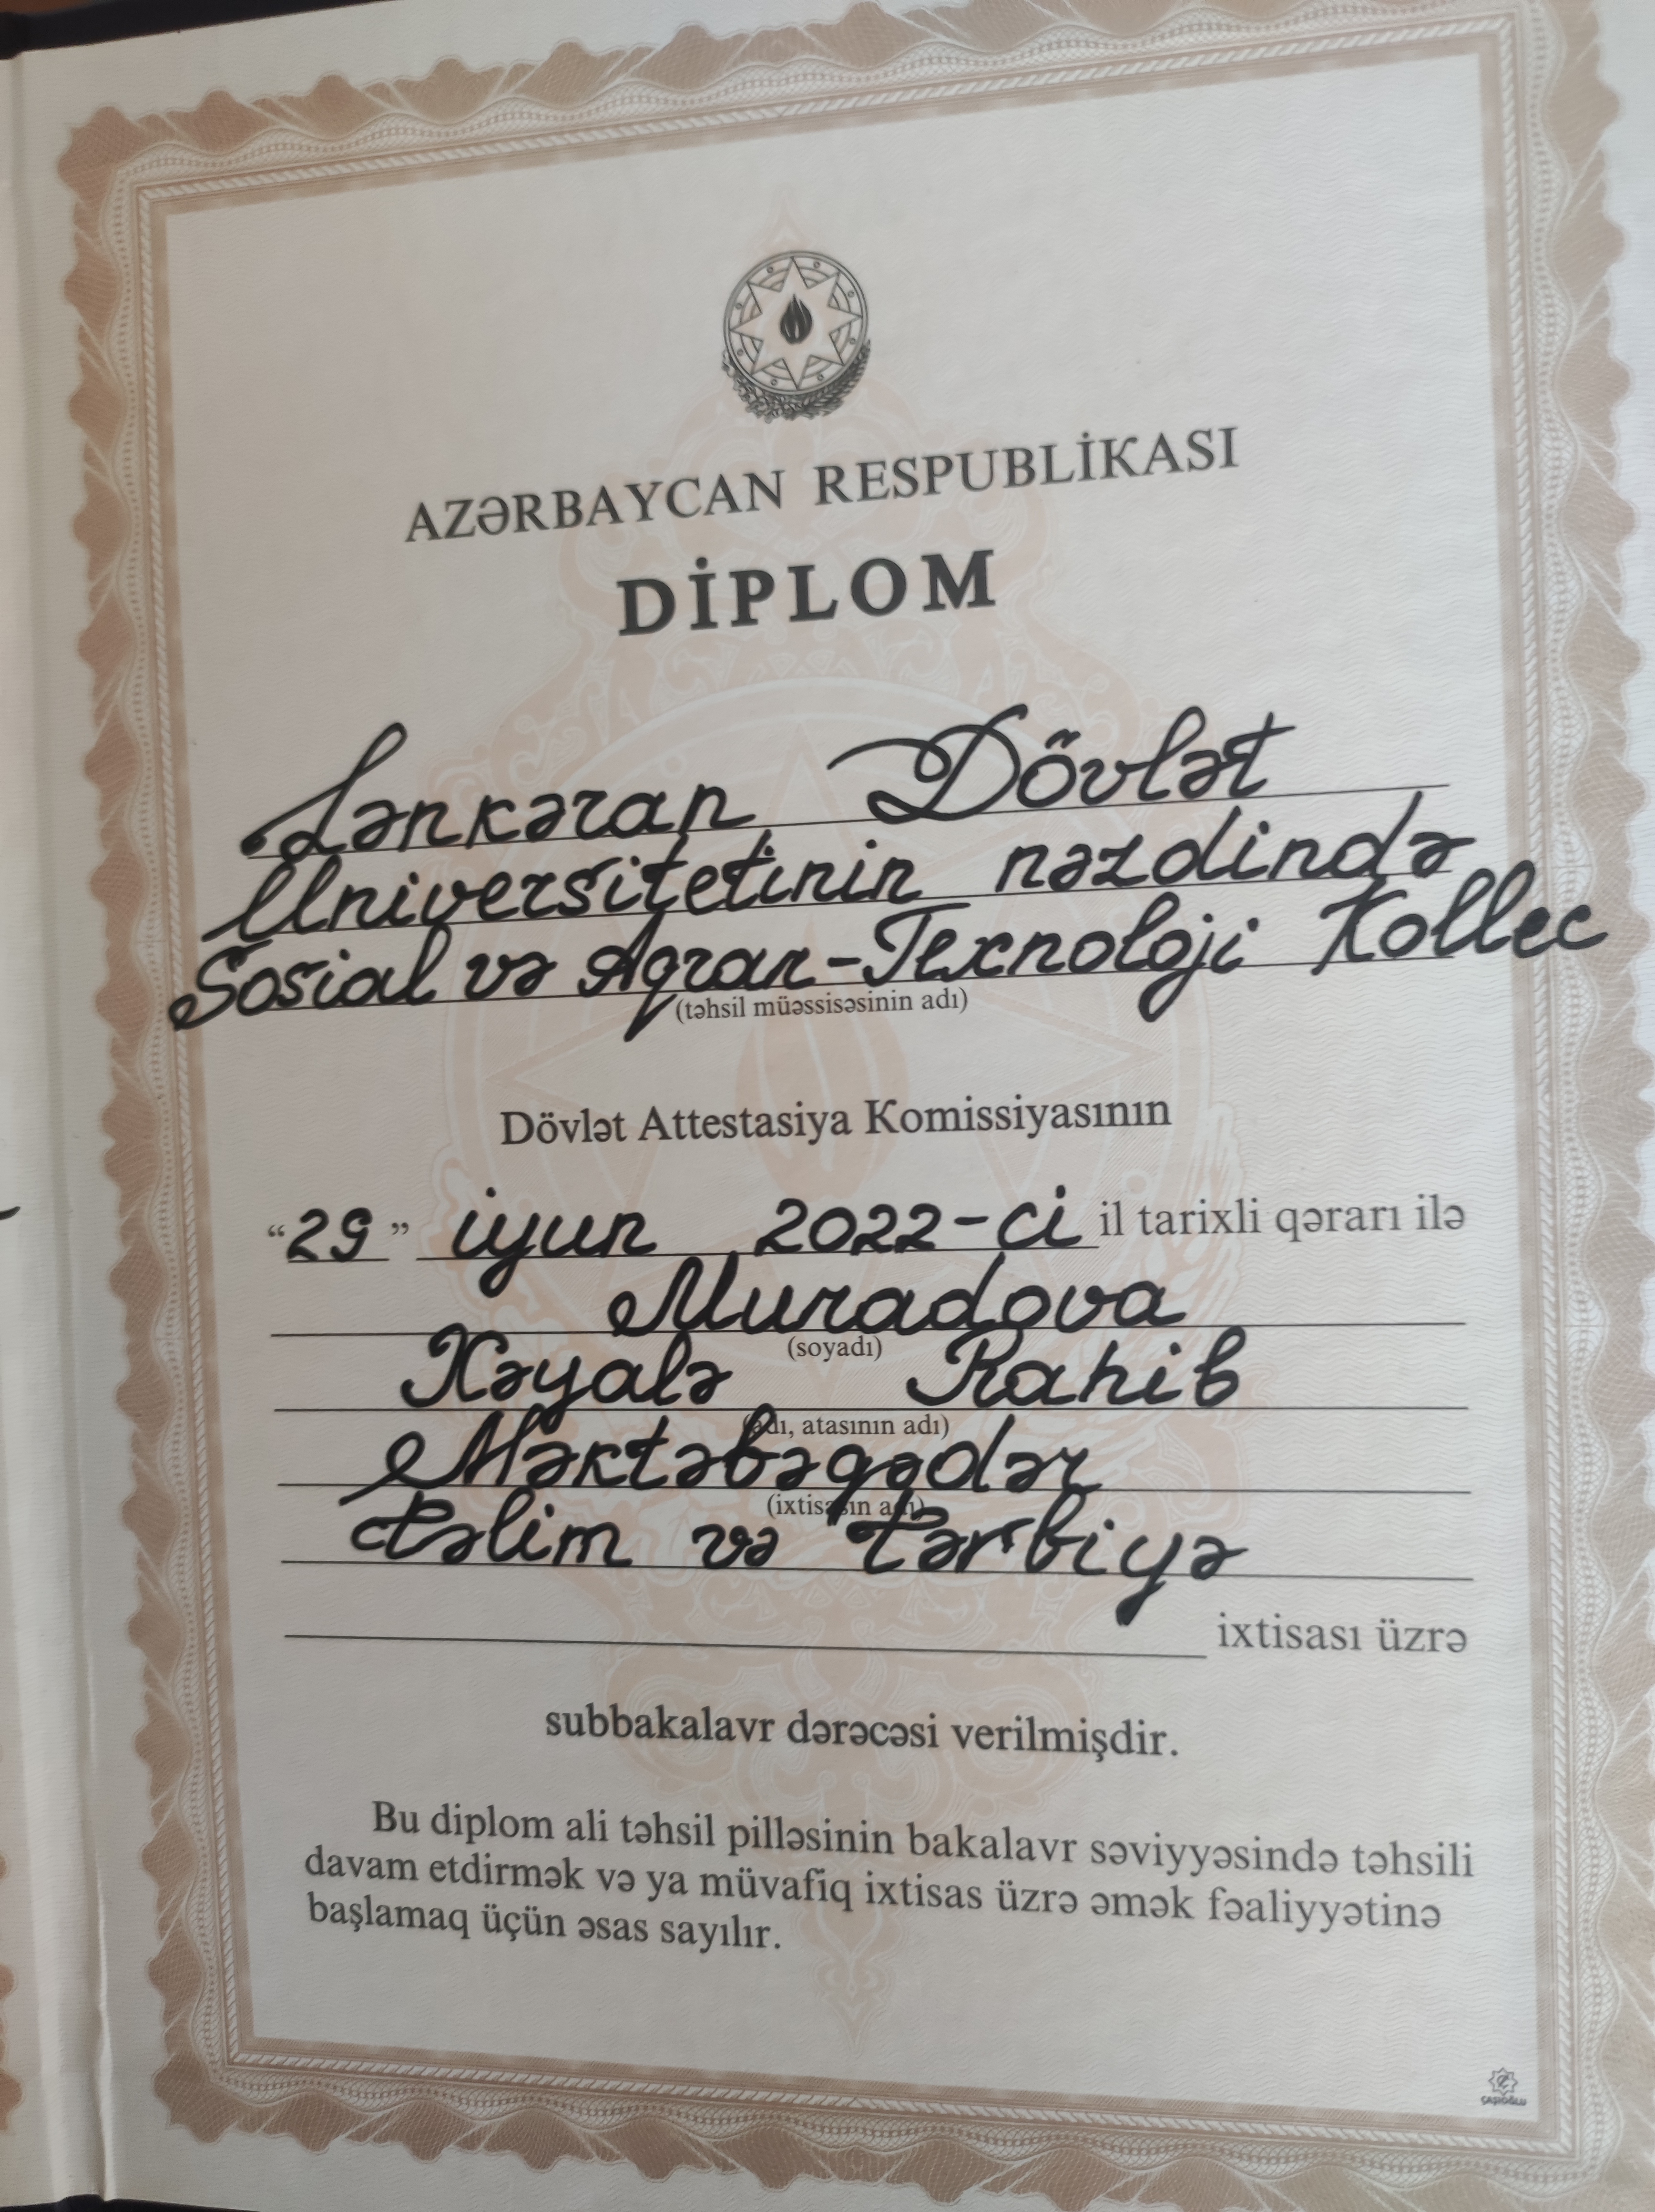 AZƏRBAYCAN RESPUBLİKASI
DİPLOM
Lənkəran Dövlət
Universitetinin nəzdində
Sosial və Aqrar-Texnoloji Kollec
(təhsil müəssisəsinin adı)
Dövlət Attestasiya Komissiyasının
“29” iyun 2022-ci il tarixli qərarı ilə
Muradova
(soyadı)
Xəyalə Rahib
(adı, atasının adı)
Məktəbəqədər
(ixtisasın adı)
təlim və tərbiyə
ixtisası üzrə
subbakalavr dərəcəsi verilmişdir.
Bu diplom ali təhsil pilləsinin bakalavr səviyyəsində təhsili
davam etdirmək və ya müvafiq ixtisas üzrə əmək fəaliyyətinə
başlamaq üçün əsas sayılır.
ÇAŞIOĞLU